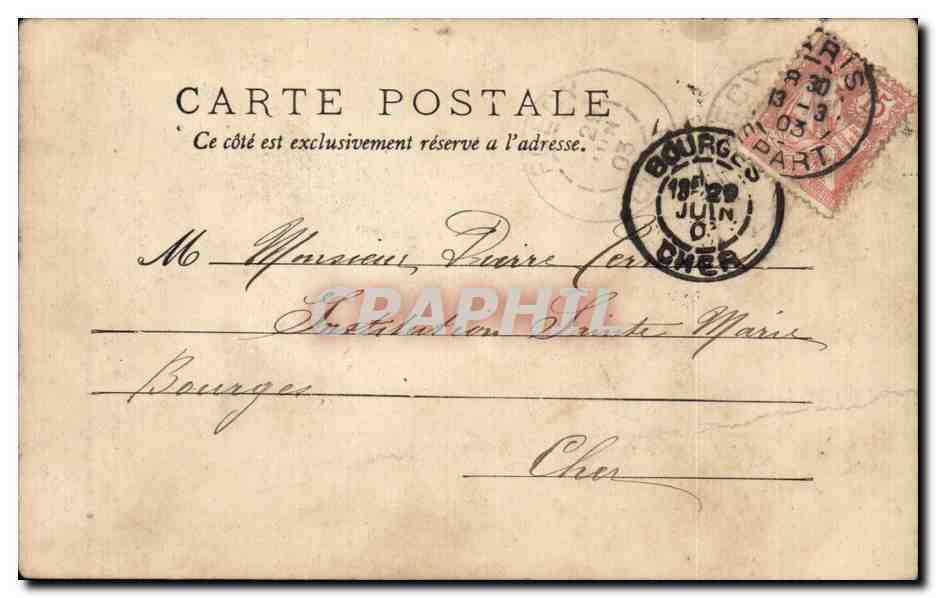 CARTE POSTALE
Ce côté est exclusivement réservé a l'adresse.
PARIS
8 30
13 3
03
DEPART
BOURGES
29
JUIN
CHER
M Monsieur Pierre
CPARHIL
Institution Sainte Marie
Bourges
Cher